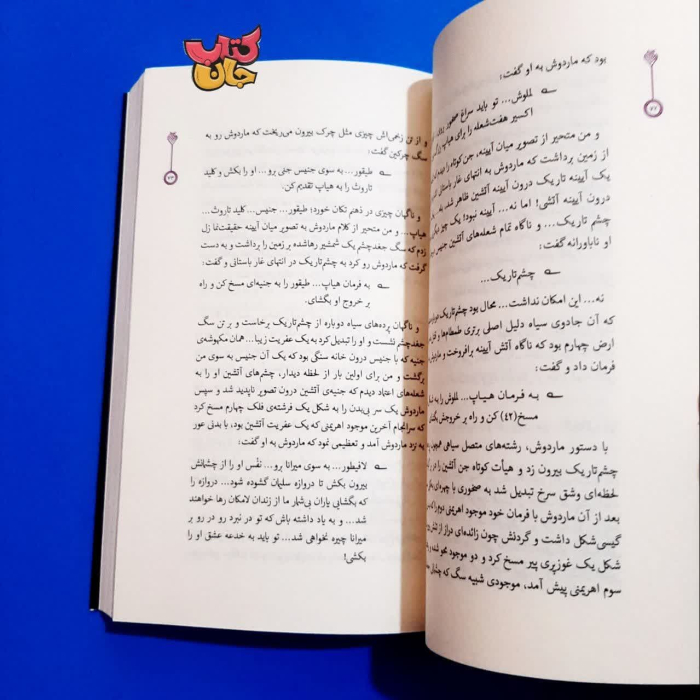 کتاب
جان
بود که ماردوش به او گفت:
لملوش... تو باید سراغ صفور بروی
اکسیر هفت‌شعله را برای هیاپ
و من متحیر از تصویر میان آیینه، جن‌کوتاه را دیدم
از زمین برداشت که ماردوش به انتهای غار باستانی
یک آیینه تاریک درون آیینه آتشین ظاهر شد
درون آیینه آتشی! اما نه... آیینه نبود! یک چیز دیگر
چشم تاریک... و ناگاه تمام شعله‌های آتشین جنیس
او ناباورانه گفت:
چشم‌تاریک...
نه... این امکان نداشت... محال بود چشم‌تاریک
که آن جادوی سیاه دلیل اصلی برتری طمطام‌ها و
ارض چهارم بود که ناگاه آتش آیینه برافروخت و ماردوش
فرمان داد و گفت:
به فرمان هیاپ... لملوش را به
مسخ(۴۲) کن و راه بر خروجش بگشای
با دستور ماردوش، رشته‌های متصل سیاهی
چشم‌تاریک بیرون زد و هیأت کوتاه جن آتشین را در
لحظه‌ای وشق سرخ تبدیل شد به صفوری با چهره‌ای
بعد از آن ماردوش با فرمان خود موجود اهریمنی دوم را که
گیسی‌شکل داشت و گردنش چون زائده‌ای دراز از تنش
شکل یک غوزپری پیر مسخ کرد و دو موجود محو شده
سوم اهریمنی پیش آمد، موجودی شبیه سگ که چشمان
و از آن زخمی‌اش چیزی مثل چرک بیرون می‌ریخت که ماردوش رو به
سگ چرکین گفت:
طیقور... به سوی جنیس جنی برو... او را بکش و کلید
تاروث را به هیاپ تقدیم کن.
و ناگهان چیزی در ذهنم تکان خورد؛ طیقور... جنیس... کلید تاروث...
هیاپ... و من متحیر از کلام ماردوش به تصویر میان آیینه حقیقت‌نما زل
زدم که سگ جغدچشم یک شمشیر رهاشده بر زمین را برداشت و به دست
گرفت که ماردوش رو کرد به چشم‌تاریک در انتهای غار باستانی و گفت:
به فرمان هیاپ... طیقور را به جنیه‌ای مسخ کن و راه
بر خروج او بگشای.
و ناگهان پرده‌های سیاه دوباره از چشم‌تاریک برخاست و بر تن سگ
جغدچشم نشست و او را تبدیل کرد به یک عفریت زیبا... همان مکیوشه‌ی
جنیه که با جنیس درون خانه سنگی بود که یک آن جنیس به سوی من
برگشت و من برای اولین بار از لحظه دیدار، چشم‌های آتشین او را به
شعله‌های اعتیاد دیدم که جنیه‌ی آتشین درون تصویر ناپدید شد و سپس
ماردوش یک سر بی‌بدن را به شکل یک فرشته‌ی فلک چهارم مسخ کرد
که سرانجام آخرین موجود اهریمنی که یک عفریت آتشین بود، با بدنی عور
به نزد ماردوش آمد و تعظیمی نمود که ماردوش به او گفت:
لافیطور... به سوی میرانا برو... نفْس او را از چشمانش
بیرون بکش تا دروازه سلیمان گشوده شود... دروازه را
که بگشایی یاران بی‌شمار ما از زندان لامکان رها خواهند
شد... و به یاد داشته باش که تو در نبرد رو در رو بر
میرانا چیره نخواهی شد... تو باید به خدعه عشق او را
بکشی!